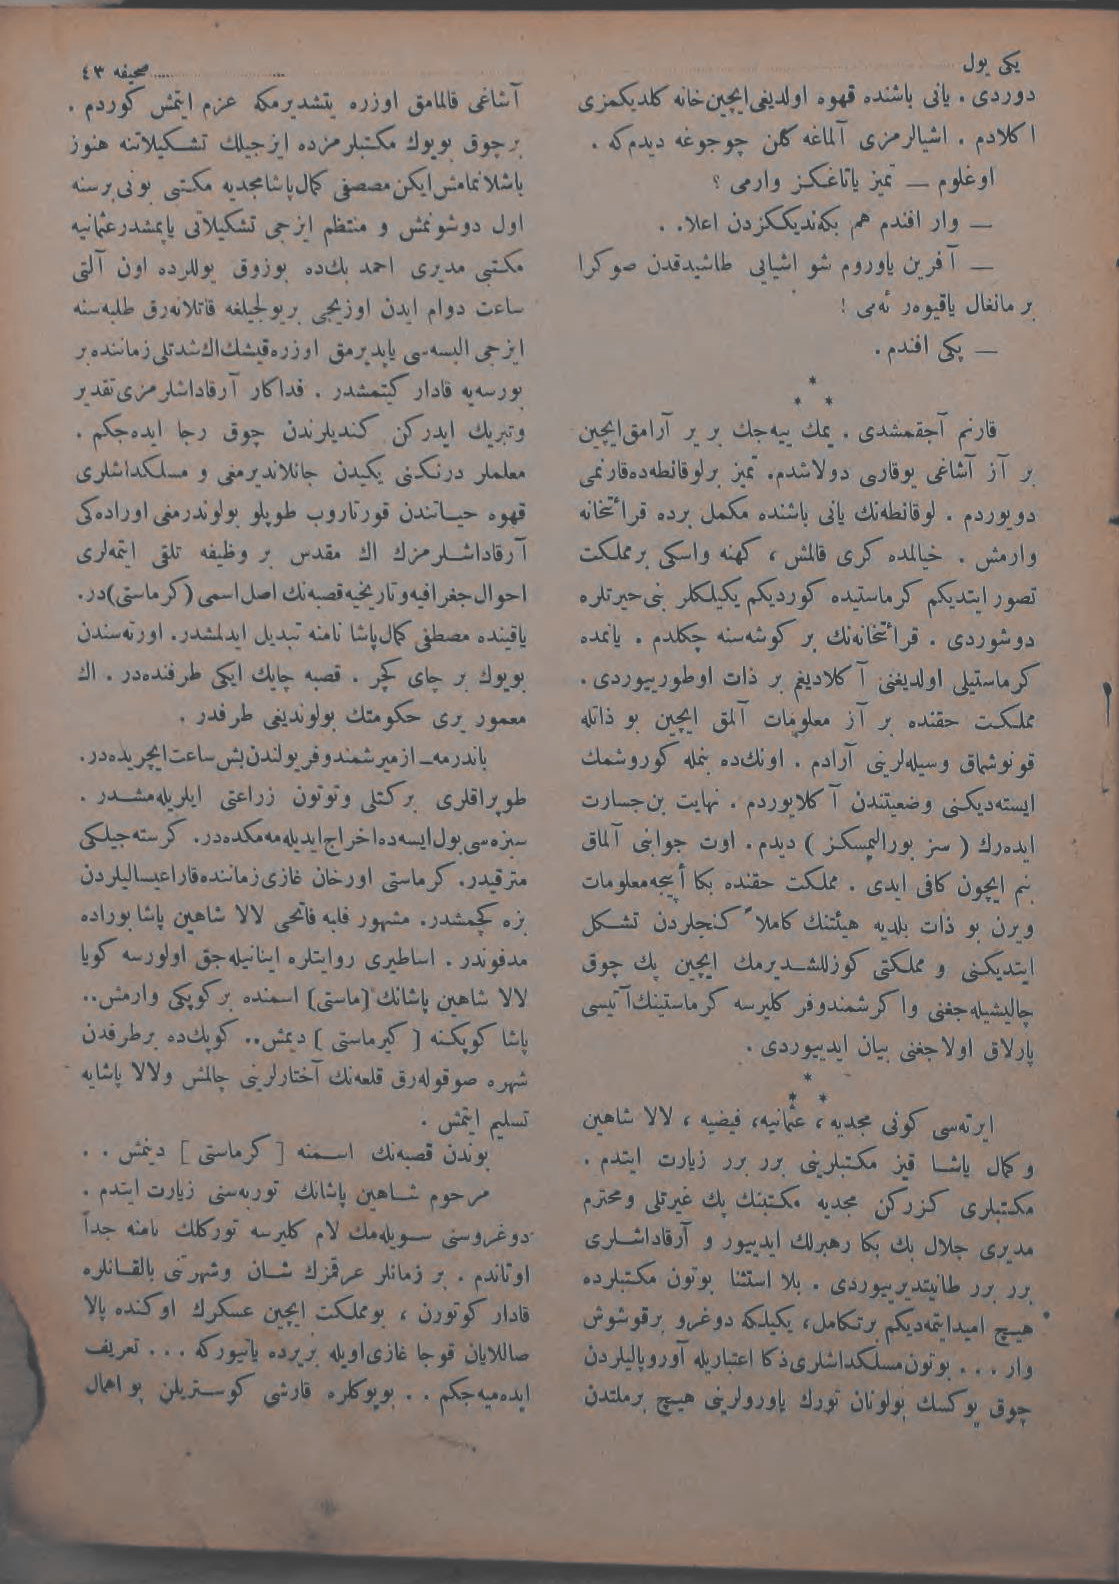 یكی یول
صحیفه ٤٣
دوردی . یانی باشنده قهوه اولدیغی ایچین خانه كلدیكمزی
اكلادم . اشیالرمزی آلماغه كلن چوجوغه دیدم كه .
اوغلوم — تمیز یاتاغكز وارمی ؟
— وار افندم هم بكه‌ندیككزدن اعلا. .
— آفرین یاوروم شو اشیایی طاشیدقدن صوكرا
بر مانغال یاقیوه‌ر ئه‌می !
— پكی افندم .
* * *
قارنم آجقمشدی . یمك ییه‌جك بر یر آرامق ایچین
بر آز آشاغی یوقاری دولاشدم. تمیز بر لوقانطه‌ده قارنمی
دویوردم . لوقانطه‌نك یانی باشنده مكمل برده قرائتخانه
وارمش . خیالمده كری قالمش ، كهنه واسكی بر مملكت
تصور ایتدیكم كرماستیده كوردیكم یكیلكلر بنی حیرتلره
دوشوردی . قرائتخانه‌نك بر كوشه‌سنه چكلدم . یانمده
كرماستیلی اولدیغنی آكلادیغم بر ذات اوطوریبوردی .
مملكت حقنده بر آز معلومات آلمق ایچین بو ذاتله
قونوشماق وسیله‌لرینی آرادم . اونك‌ده بنمله كوروشمك
ایسته‌دیكنی وضعیتندن آكلایوردم . نهایت بن جسارت
ایده‌رك ( سز بورالیمسكز ) دیدم. اوت جوابنی آلماق
بنم ایچون كافی ایدی . مملكت حقنده بكا أییجه معلومات
ویرن بو ذات بلدیه هیئتنك كاملاً كنجلردن تشكل
ایتدیكنی و مملكتی كوزللشدیرمك ایچین پك چوق
چالیشیله‌جغنی واكر شمندوفر كلیرسه كرماستینك آتیسی
پارلاق اولاجغنی بیان ایدییوردی .
* * *
ایرته‌سی كونی مجدیه ، عثمانیه، فیضیه ، لالا شاهین
و كمال پاشا قیز مكتبلرینی برر برر زیارت ایتدم .
مكتبلری كزركن مجدیه مكتبنك پك غیرتلی و محترم
مدیری جلال بك بكا رهبرلك ایدییور و آرقاداشلری
برر برر طانیتدیرییوردی . بلا استثنا بوتون مكتبلرده
هیچ امید ایتمه‌دیكم بر تكامل، یكیلكه دوغرو بر قوشوش
وار ... بوتون مسلكداشلری ذكا اعتباریله آوروپالیلردن
چوق یوكسك بولونان تورك یاورولرینی هیچ بر ملتدن
آشاغی قالمامق اوزره یتشدیرمكه عزم ایتمش كوردم .
بر چوق بویوك مكتبلرمزده ایزجیلك تشكیلاتنه هنوز
باشلانمامش ایكن مصطفی كمال پاشا مجدیه مكتبی بونی بر سنه
اول دوشونمش و منتظم ایزجی تشكیلاتی یاپمشدر عثمانیه
مكتبی مدیری احمد بك‌ده بوزوق یوللرده اون آلتی
ساعت دوام ایدن اوزیجی بر یولجیلغه قاتلانه‌رق طلبه‌سنه
ایزجی البسه‌سی یاپدیرمق اوزره قیشك اك شدتلی زماننده بر
بورسه‌یه قادار كیتمشدر . فداكار آرقاداشلرمزی تقدیر
وتبریك ایدركن كندیلرندن چوق رجا ایده‌جكم .
معلملر درنكنی یكیدن جانلاندیرمغی و مسلكداشلری
قهوه حیاتندن قورتاروب طوپلو بولوندرمغی اوراده‌كی
آرقاداشلرمزك اك مقدس بر وظیفه تلقی ایتمه‌لری
احوال جغرافیه و تاریخیه قصبه‌نك اصل اسمی (كرماستی) در.
یاقینده مصطفی كمال پاشا نامنه تبدیل ایدلمشدر. اورته‌سندن
بویوك بر چای كچر . قصبه چایك ایكی طرفنده‌در . اك
معمور یری حكومتك بولوندیغی طرفدر .
باندرمه — ازمیر شمندوفر یولندن بش ساعت ایچریده‌در.
طوپراقلری بركتلی وتوتون زراعتی ایلریله‌مشدر .
سبزه‌سی بول ایسه‌ده اخراج ایدیله‌مه‌مكده‌در. كرسته‌جیلكی
مترقیدر. كرماستی اورخان غازی زماننده قاراعیسالیلردن
بزه كچمشدر. مشهور فلبه فاتحی لالا شاهین پاشا بوراده
مدفوندر . اساطیری روایتلره اینانیله‌جق اولورسه كویا
لالا شاهین پاشانك [ماستی] اسمنده بر كوپكی وارمش..
پاشا كوپكنه [ كیرماستی ] دیمش.. كوپك‌ده بر طرفدن
شهره صوقوله‌رق قلعه‌نك آختارلرینی چالمش ولالا پاشایه
تسلیم ایتمش .
بوندن قصبه‌نك اسمنه [ كرماستی ] دینمش . .
مرحوم شاهین پاشانك توربه‌سنی زیارت ایتدم .
دوغروسنی سویله‌مك لازم كلیرسه توركلك نامنه جداً
اوتاندم . بر زمانلر عرقمزك شان وشهرتنی بالقانلره
قادار كوتورن ، بو مملكت ایچین عسكرك اوكنده پالا
صاللایان قوجا غازی اویله بر یرده یاتیوركه ... تعریف
ایده‌میه‌جكم .. بویوكلره قارشی كوستریلن بو اهمال